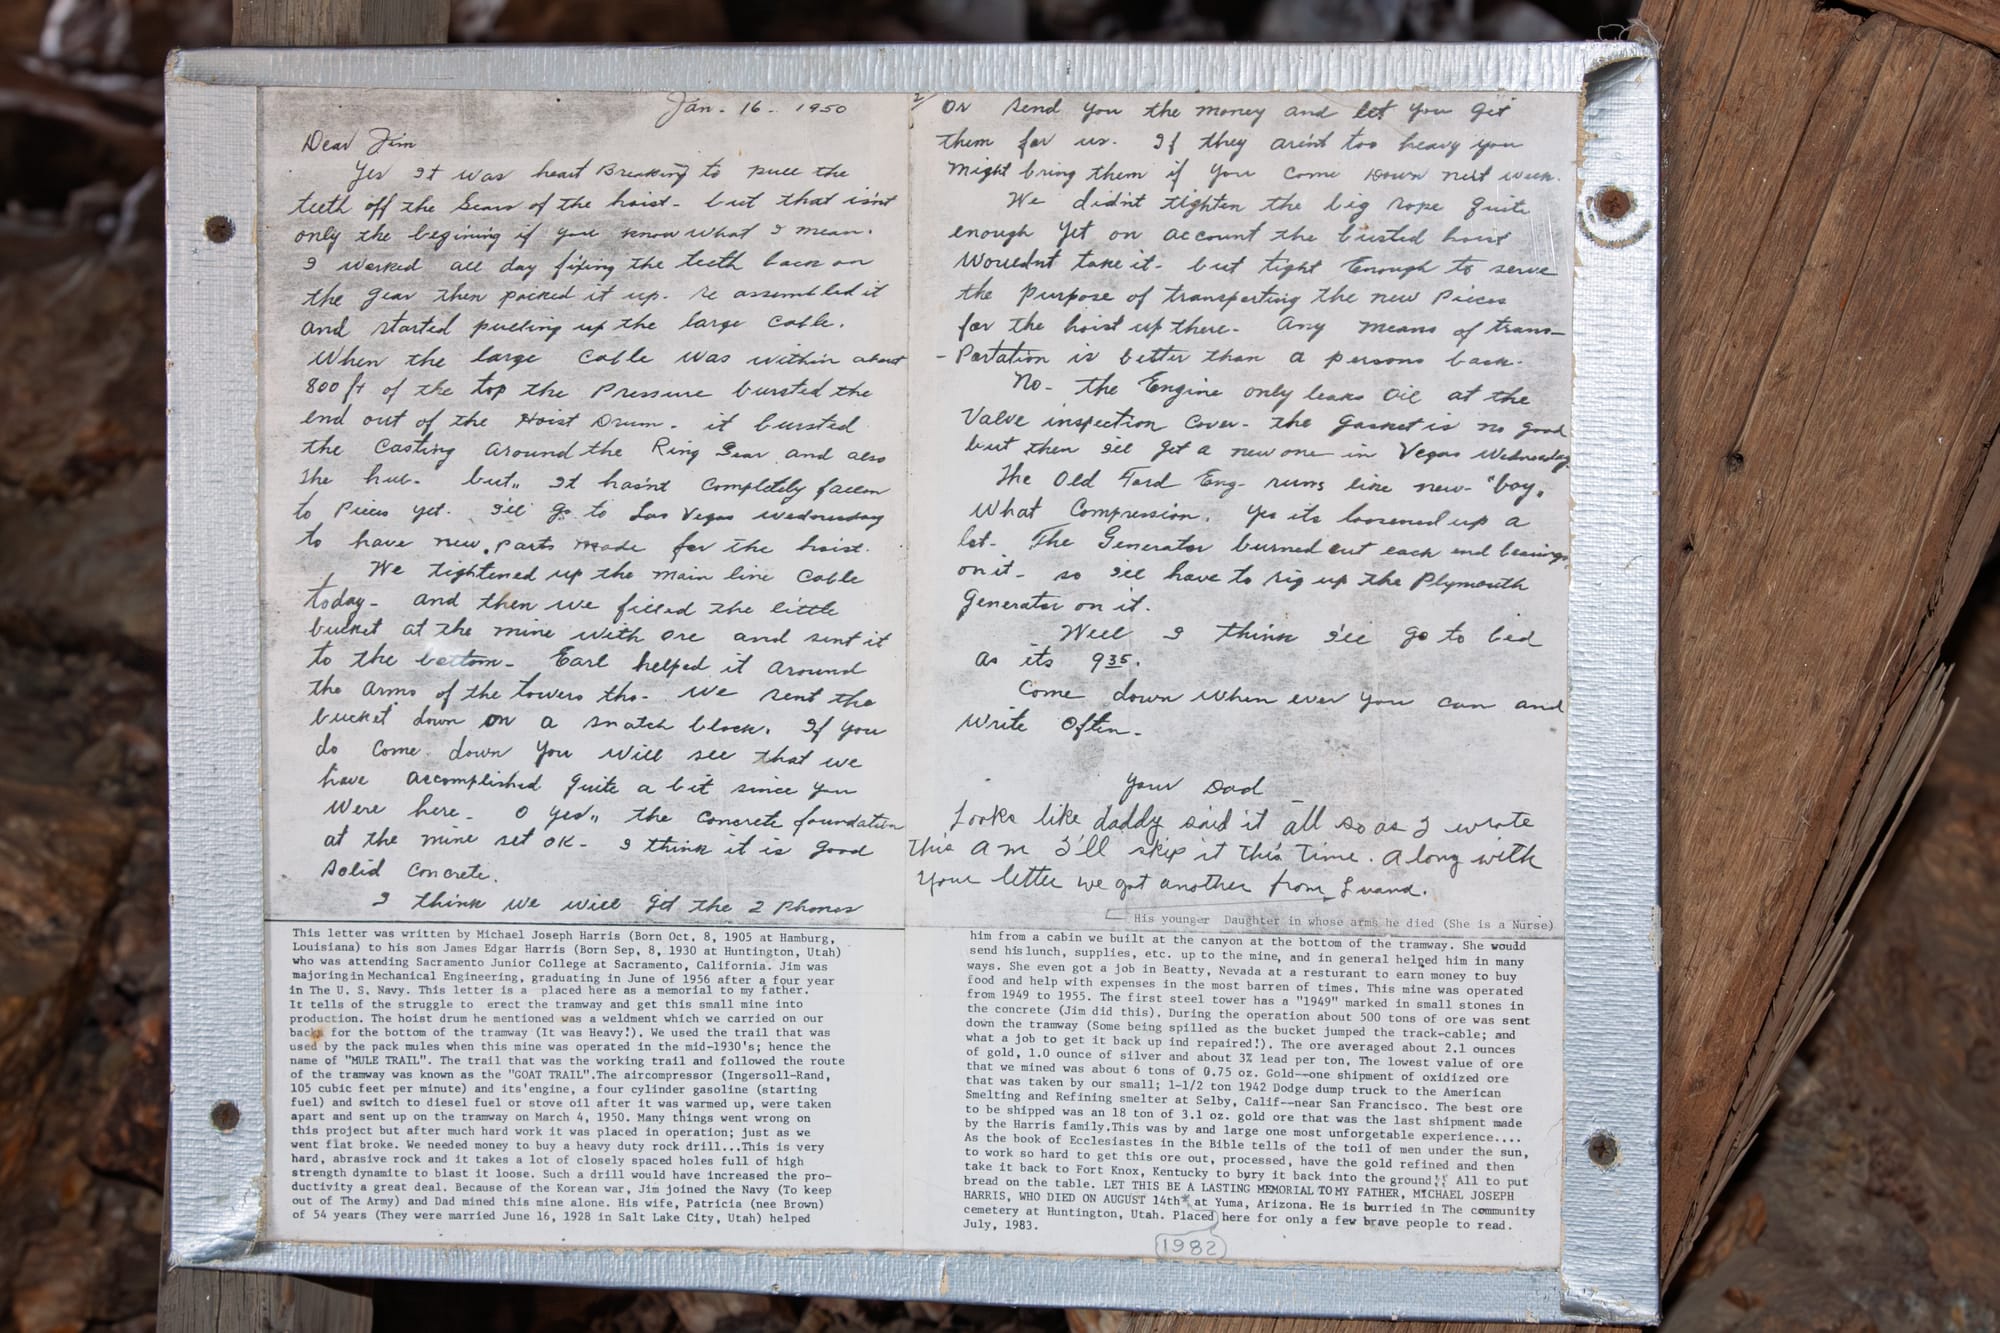 Jan. 16 - 1950
Dear Jim
Yes It was heart Breaking to pull the
teeth off the Gears of the hoist - but that isn't
only the begining if you know what I mean.
I worked all day fixing the teeth back on
the gear then packed it up. re assembled it
and started pulling up the large cable.
When the large cable was within about
800 ft of the top the Pressure bursted the
end out of the Hoist Drum - it bursted
the casting around the Ring Gear and also
the hub - but,, It hasn't completely fallen
to Pieces yet. I'll go to Las Vegas Wednesday
to have new parts made for the hoist.
We tightened up the main line cable
today - and then we filled the little
bucket at the mine with ore and sent it
to the bottom - Earl helped it around
the arms of the towers tho - we sent the
bucket down on a snatch block. If you
do come down you will see that we
have accomplished quite a bit since you
were here - O yes,, the concrete foundation
at the mine set OK - I think it is good
solid concrete.
I think we will get the 2 Phones
2/ or send you the money and let you get
them for us. If they aren't too heavy you
might bring them if you come down next week.
We didn't tighten the big rope quite
enough yet on account the busted hoist
wouldn't take it - but tight enough to serve
the purpose of transporting the new pieces
for the hoist up there - Any means of trans-
-portation is better than a persons back.
No - the Engine only leaks oil at the
Valve inspection cover - the gasket is no good
but then I'll get a new one in Vegas Wednesday
The Old Ford Eng - runs like new - "boy,
What Compression. Yes its loosened up a
lot - The Generator burned out each end bearings
on it - so I'll have to rig up the Plymouth
Generator on it.
Well I think I'll go to bed
as its 9 35.
Come down when ever you can and
write often -
Your Dad
Looks like daddy said it all so as I wrote
this A M I'll skip it this time. Along with
your letter we got another from Luana.
His younger Daughter in whose arms he died (She is a Nurse)
This letter was written by Michael Joseph Harris (Born Oct. 8, 1905 at Hamburg,
Louisiana) to his son James Edgar Harris (Born Sep, 8, 1930 at Huntington, Utah)
who was attending Sacramento Junior College at Sacramento, California. Jim was
majoring in Mechanical Engineering, graduating in June of 1956 after a four year
in The U. S. Navy. This letter is a placed here as a memorial to my father.
It tells of the struggle to erect the tramway and get this small mine into
production. The hoist drum he mentioned was a weldment which we carried on our
backs for the bottom of the tramway (It was Heavy!). We used the trail that was
used by the pack mules when this mine was operated in the mid-1930's; hence the
name of "MULE TRAIL". The trail that was the working trail and followed the route
of the tramway was known as the "GOAT TRAIL".The aircompressor (Ingersoll-Rand,
105 cubic feet per minute) and its'engine, a four cylinder gasoline (starting
fuel) and switch to diesel fuel or stove oil after it was warmed up, were taken
apart and sent up on the tramway on March 4, 1950. Many things went wrong on
this project but after much hard work it was placed in operation; just as we
went flat broke. We needed money to buy a heavy duty rock drill...This is very
hard, abrasive rock and it takes a lot of closely spaced holes full of high
strength dynamite to blast it loose. Such a drill would have increased the pro-
ductivity a great deal. Because of the Korean war, Jim joined the Navy (To keep
out of The Army) and Dad mined this mine alone. His wife, Patricia (nee Brown)
of 54 years (They were married June 16, 1928 in Salt Lake City, Utah) helped
him from a cabin we built at the canyon at the bottom of the tramway. She would
send his lunch, supplies, etc. up to the mine, and in general helped him in many
ways. She even got a job in Beatty, Nevada at a resturant to earn money to buy
food and help with expenses in the most barren of times. This mine was operated
from 1949 to 1955. The first steel tower has a "1949" marked in small stones in
the concrete (Jim did this). During the operation about 500 tons of ore was sent
down the tramway (Some being spilled as the bucket jumped the track-cable; and
what a job to get it back up ind repaired!). The ore averaged about 2.1 ounces
of gold, 1.0 ounce of silver and about 3% lead per ton, The lowest value of ore
that we mined was about 6 tons of 0.75 oz. Gold--one shipment of oxidized ore
that was taken by our small; 1-1/2 ton 1942 Dodge dump truck to the American
Smelting and Refining smelter at Selby, Calif--near San Francisco. The best ore
to be shipped was an 18 ton of 3.1 oz. gold ore that was the last shipment made
by the Harris family.This was by and large one most unforgetable experience....
As the book of Ecclesiastes in the Bible tells of the toil of men under the sun,
to work so hard to get this ore out, processed, have the gold refined and then
take it back to Fort Knox, Kentucky to bury it back into the ground!! All to put
bread on the table. LET THIS BE A LASTING MEMORIAL TO MY FATHER, MICHAEL JOSEPH
HARRIS, WHO DIED ON AUGUST 14th* at Yuma, Arizona. He is burried in The community
cemetery at Huntington, Utah. Placed here for only a few brave people to read.
July, 1983.
1982